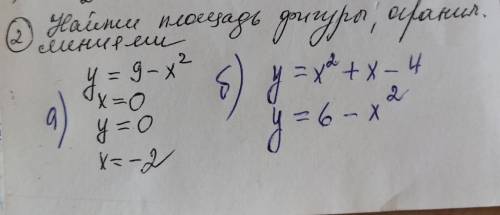 ② Найти площадь фигуры, огранич.
линиями
а) y = 9 - x²
x = 0
y = 0
x = -2
б) y = x² + x - 4
y = 6 - x²